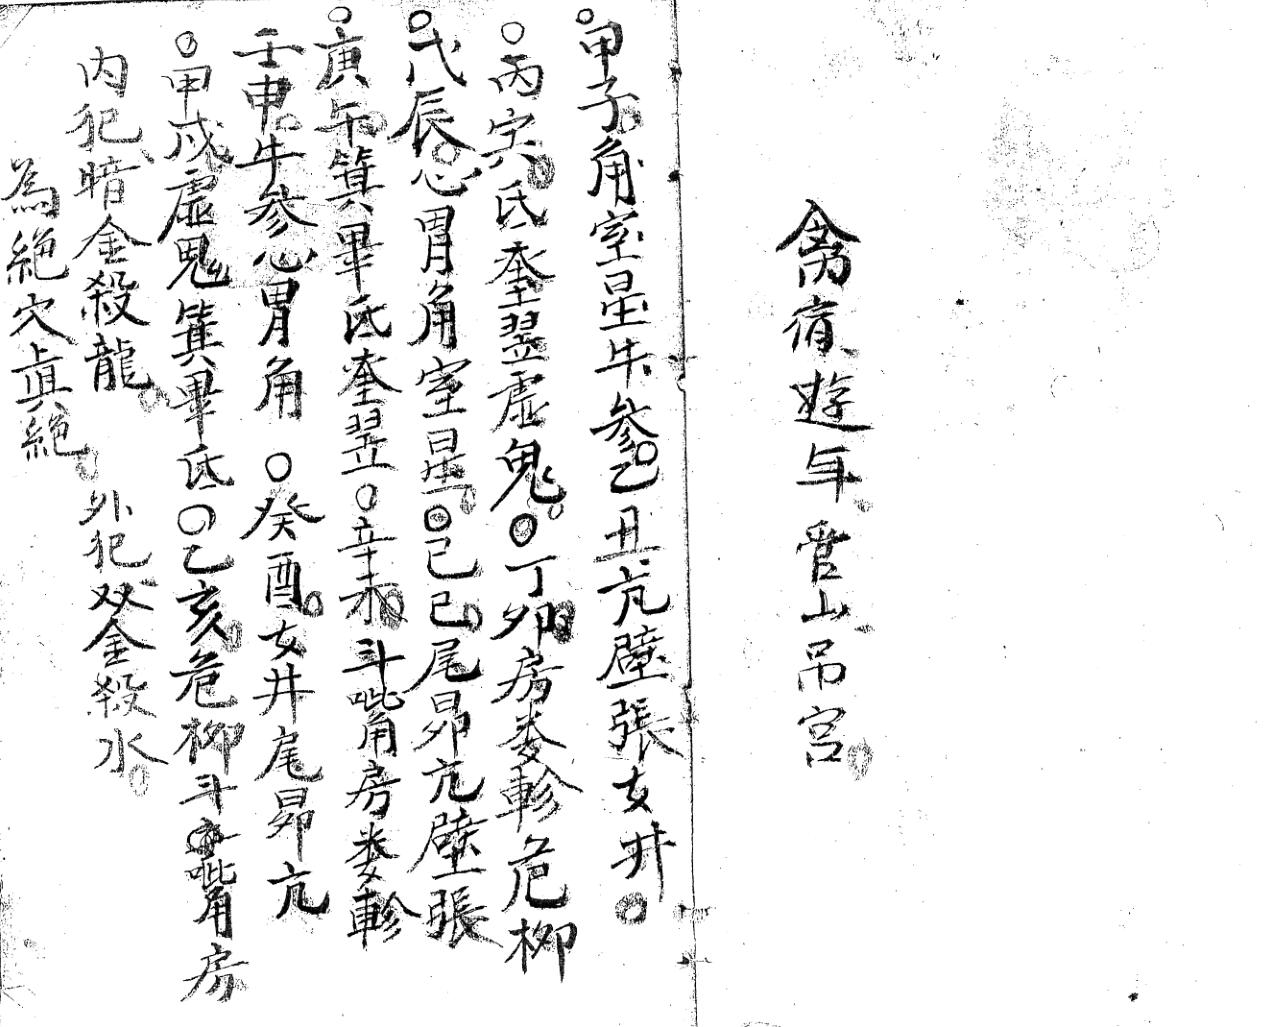 禽宿遊年管山吊宫
○甲子角室星牛參○乙丑亢壁張女井○
○丙寅氐奎翌虛鬼○丁卯房娄軫危柳
○戊辰心胃角室星○己巳尾昴亢壁張
○庚午箕畢氐奎翌○辛未斗嘴角房娄軫
壬申牛參心胃角○癸酉女井尾昴亢
○甲戍虛鬼箕畢氐○乙亥危柳斗嘴角房
内犯暗金殺龍 外犯双金殺水
為絕穴眞絕